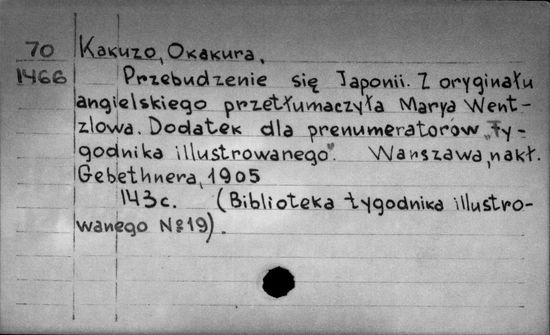 70 Kakuzo, Okakura,
1466 Przebudzenie się Japonii. Z oryginału
angielskiego przetłumaczyła Marya Went-
zlowa. Dodatek dla prenumeratorów „Ty-
godnika illustrowanego". Warszawa, nakł.
Gebethnera, 1905
143c. (Biblioteka tygodnika illustro-
wanego №19).